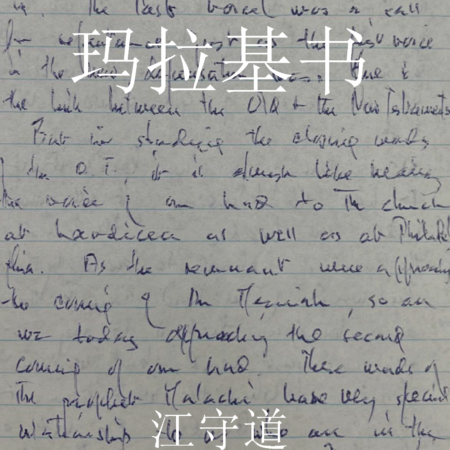 in. The last voice was a call
for repentance just as the first voice
玛拉基书
in the new dispensation was. Here is
the link between the Old & the New Testaments
But in studying the closing words
of the O.T., it is always like hearing
the voice of our Lord to the church
at Laodicea as well as at Philadel
phia. As the remnant were approaching
the coming of the Messiah, so are
we today approaching the second
coming of our Lord. These words of
the prophet Malachi have very special
江守道
relationship to us who are in the